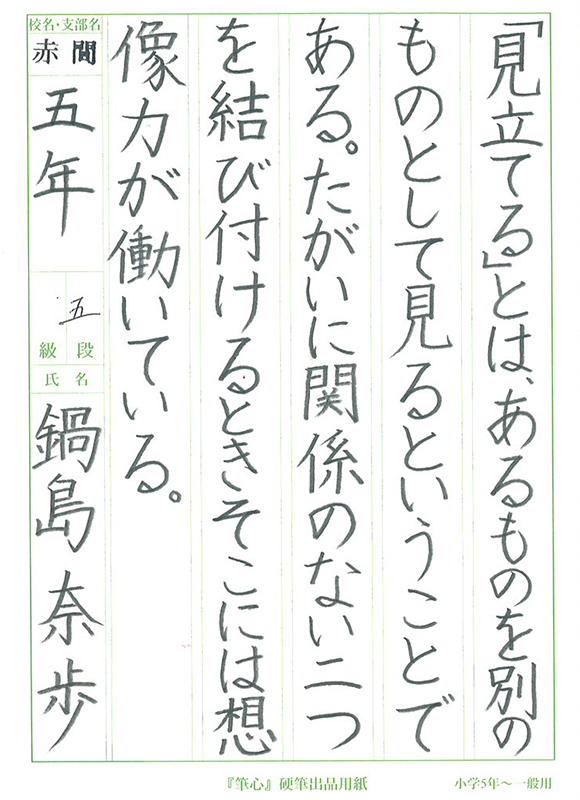 「見立てる」とは、あるものを別の
ものとして見るということで
ある。たがいに関係のない二つ
を結び付けるときそこには想
像力が働いている。
校名・支部名
赤間
五年
五
級 段
氏名
鍋島奈歩
『筆心』硬筆出品用紙
小学5年～一般用